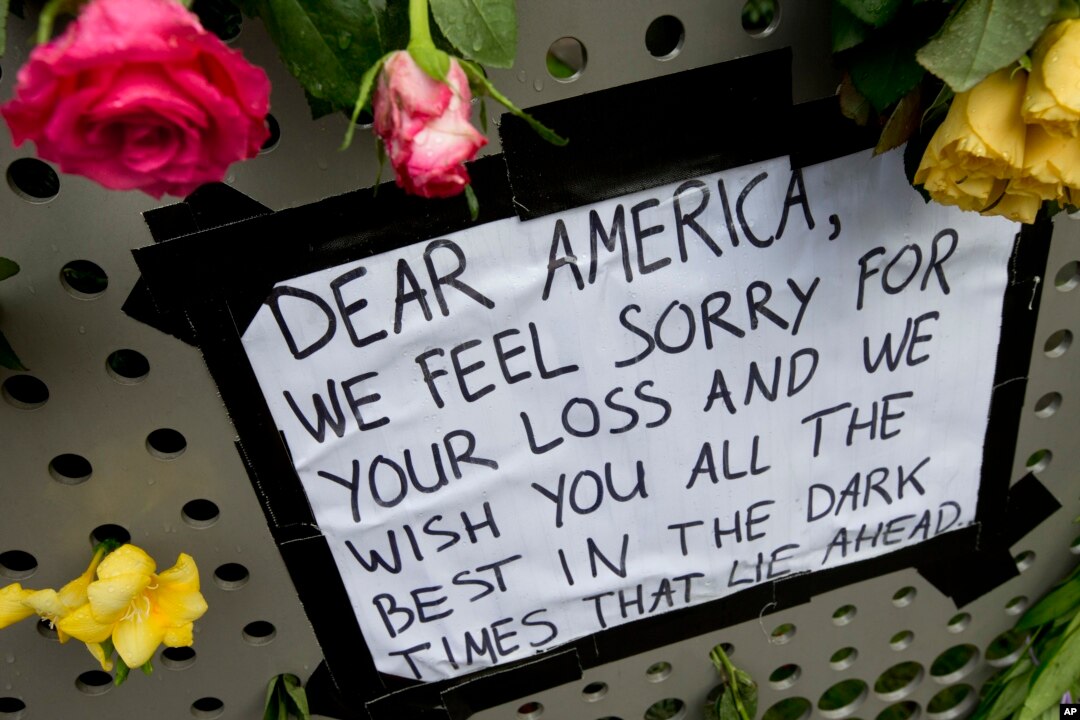 DEAR AMERICA,
WE FEEL SORRY FOR
YOUR LOSS AND WE
WISH YOU ALL THE
BEST IN THE DARK
TIMES THAT LIE AHEAD.
AP